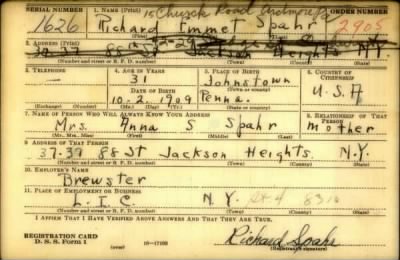 SERIAL NUMBER 1. NAME (Print) 15 Church Road Ardmore Pa ORDER NUMBER
1626 Richard Emmet Spahr 2905
(First) (Middle) (Last)
2. ADDRESS (Print)
37-39 88 St Jackson Heights N.Y.
(Number and street or R. F. D. number) (Town) (County) (State)
3. TELEPHONE 4. AGE IN YEARS 5. PLACE OF BIRTH 6. COUNTRY OF CITIZENSHIP
31 Johnstown
DATE OF BIRTH (Town or county)
10-2-909 Penna. U.S.A
(Exchange) (Number) (Mo.) (Day) (Yr.) (State or country)
7. NAME OF PERSON WHO WILL ALWAYS KNOW YOUR ADDRESS 8. RELATIONSHIP OF THAT PERSON
Mrs. Anna S Spahr Mother
(Mr., Mrs., Miss) (First) (Middle) (Last)
9. ADDRESS OF THAT PERSON
37-39 88 St Jackson Heights. N.Y.
(Number and street or R. F. D. number) (Town) (County) (State)
10. EMPLOYER'S NAME
Brewster
11. PLACE OF EMPLOYMENT OR BUSINESS
L.I.C. N.Y.
(Number and street or R. F. D. number) (Town) (County) (State)
I AFFIRM THAT I HAVE VERIFIED ABOVE ANSWERS AND THAT THEY ARE TRUE.
REGISTRATION CARD
D. S. S. Form 1 (over) 16-17105 Richard Spahr
(Registrant's signature)